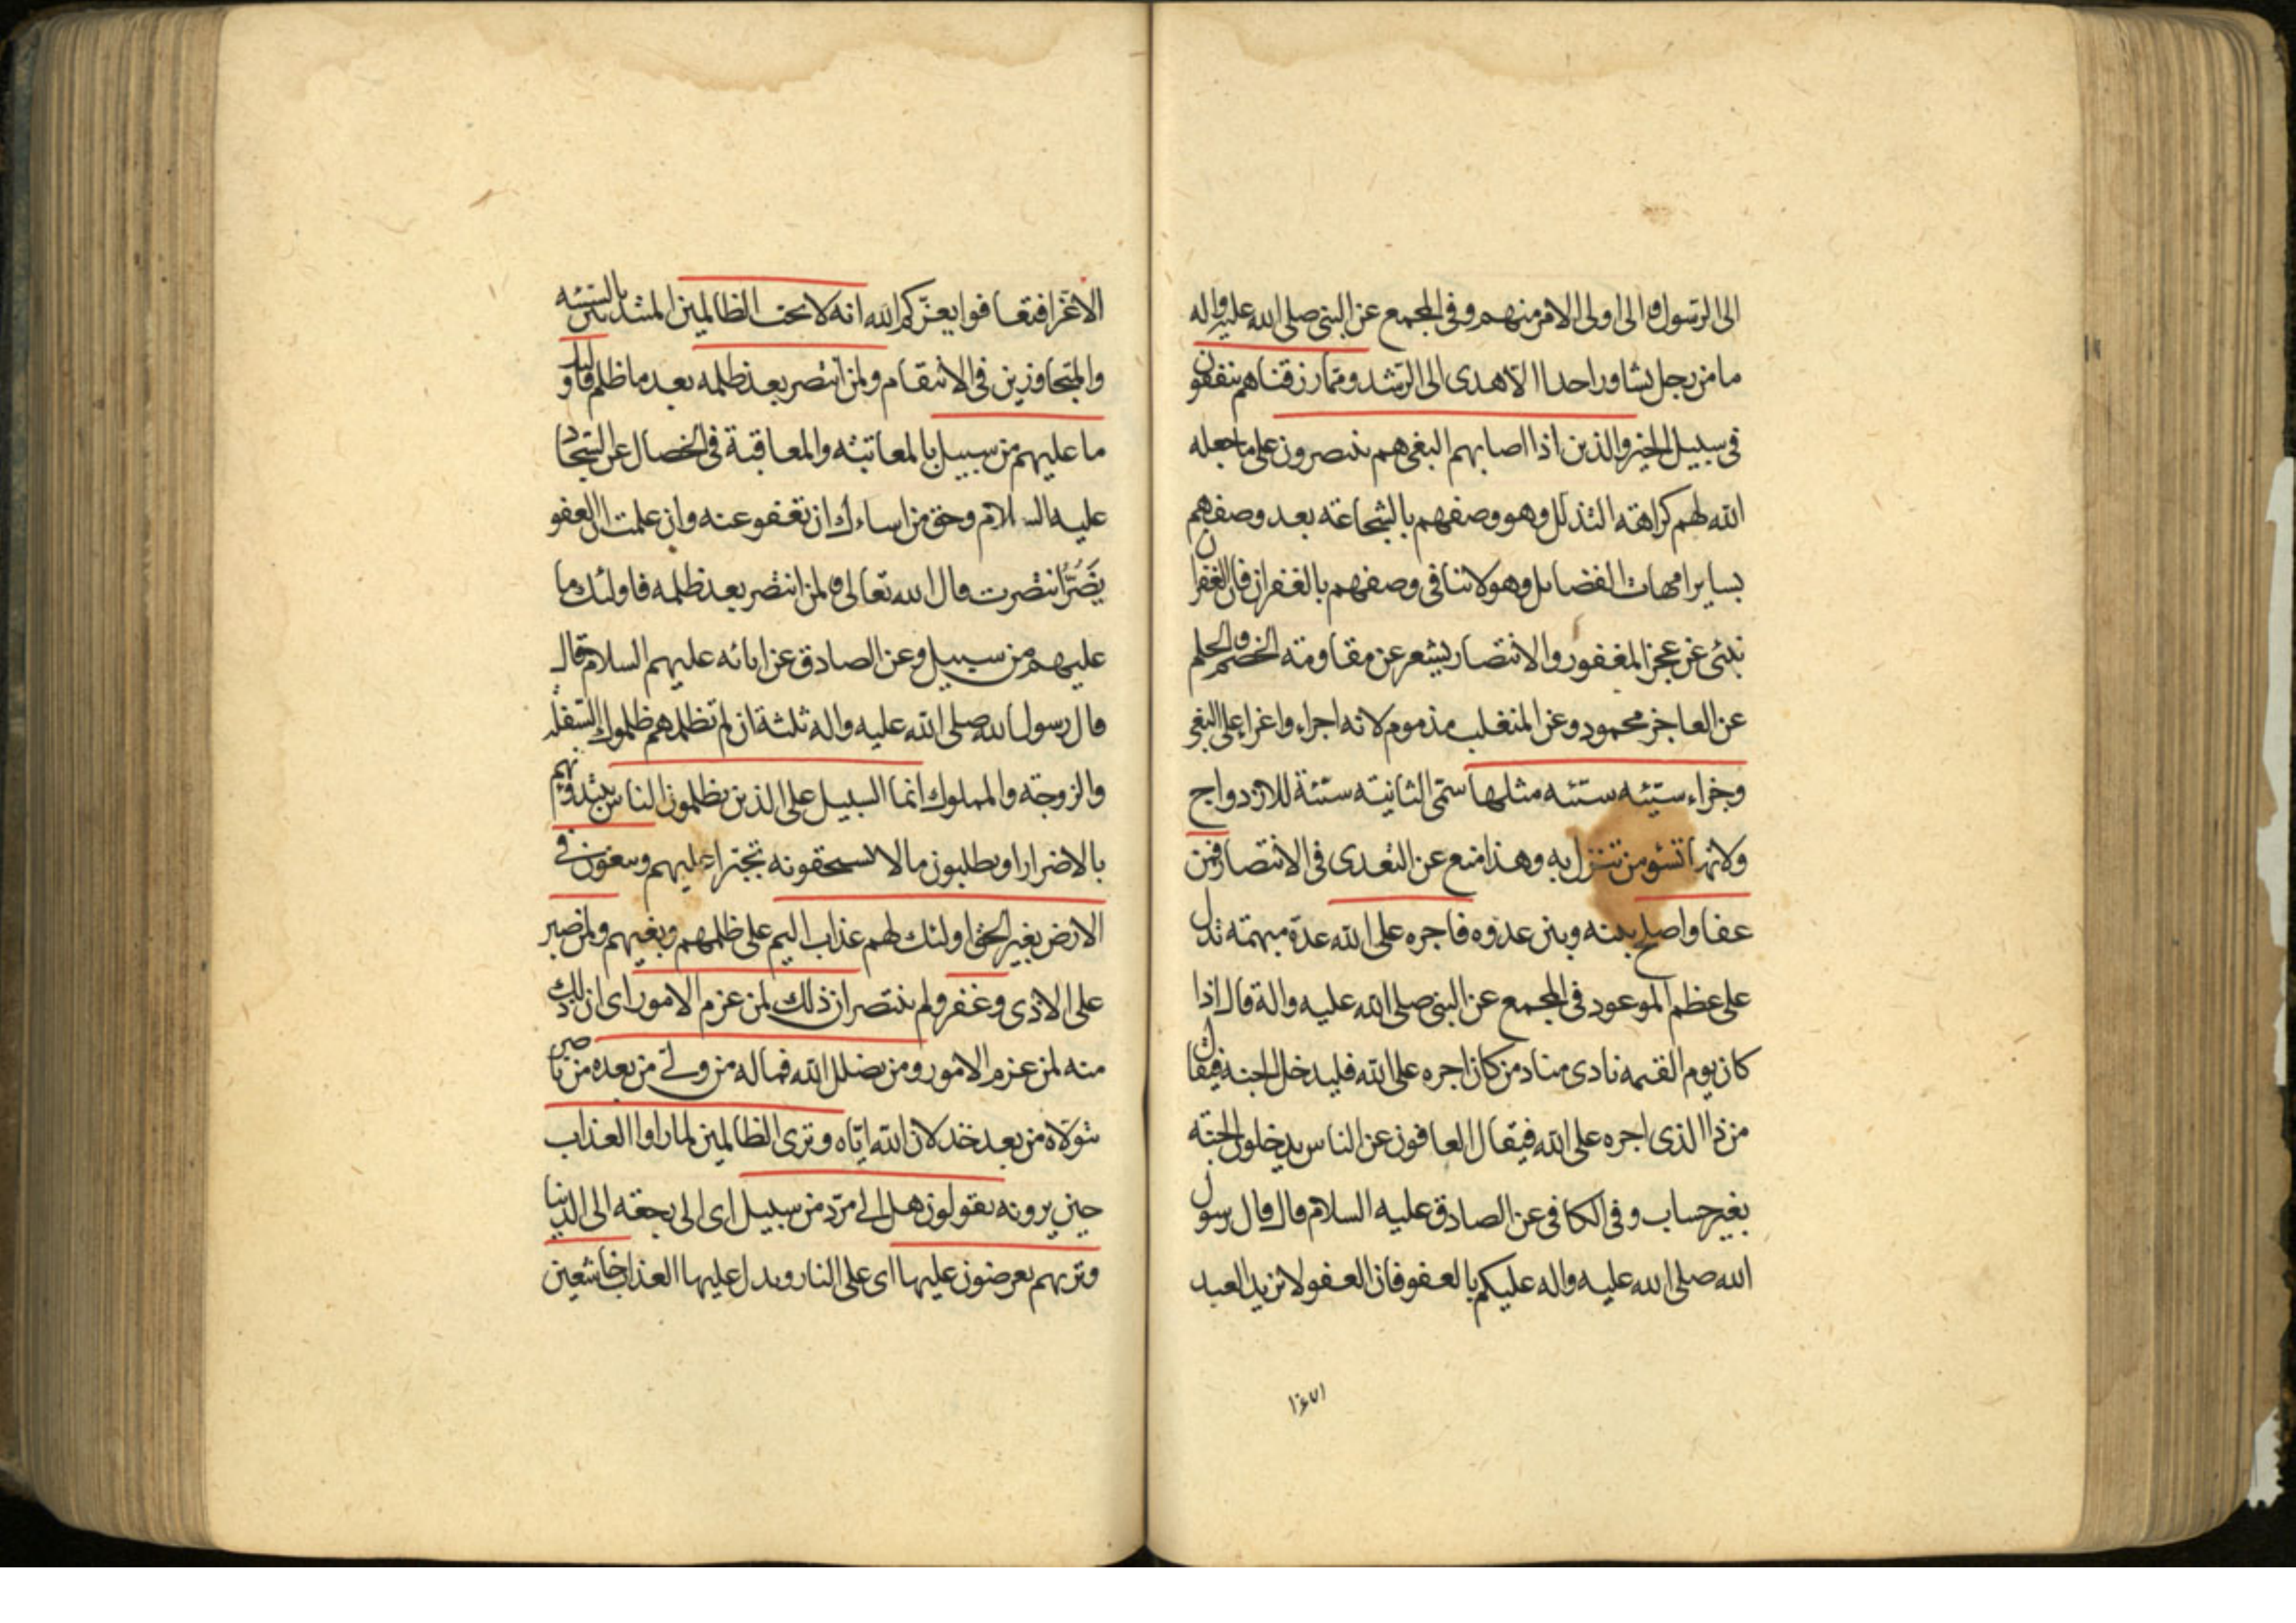 الى الرسول والى اولى الامر منهم وفى المجمع عن النبى صلى الله عليه واله
ما من رجل يشاور احدا الا هدى الى الرشد ومما رزقناهم ينفقون
فى سبيل الخير والذين اذا اصابهم البغى هم ينتصرون على ما جعله
الله لهم كراهته التذلل وهو وصفهم بالشجاعة بعد وصفهم
بساير امهات الفضايل وهو لا ينافى وصفهم بالغفران فان الغفران
ينبئ عن عجز المغفور والانتصار يشعر عن مقاومة الخصم والحلم
عن العاجز محمود وعن المتغلب مذموم لانه اجراء واغراء على البغى
وجزاء سيئه سيئه مثلها سمى الثانيته سيئة للازدواج
ولانها تسئو من تنزل به وهذا منع عن التعدى فى الانتصار فمن
عفا واصلح بينه وبين عدوه فاجره على الله عدة مبهمة تدل
على عظم الموعود فى المجمع عن النبى صلى الله عليه واله قال اذا
كان يوم القيمه نادى مناد من كان اجره على الله فليدخل الجنه فيقال
من ذا الذى اجره على الله فيقال العافون عن الناس يدخلون الجنه
بغير حساب وفى الكافى عن الصادق عليه السلام قال قال رسول
الله صلى الله عليه واله عليكم بالعفو فان العفو لا يزيد العبد
الا عزا فتعافوا يعزكم الله انه لا يحب الظالمين المبتدئين بالسيئه
والمتجاوزين فى الانتقام ولمن انتصر بعد ظلمه بعد ما ظلم فاولئك
ما عليهم من سبيل بالمعاتبه والمعاقبة فى الخصال عن السجاد
عليه السلام وحق من اساءك ان تعفو عنه وان علمت ان العفو
يضر انتصرت قال الله تعالى ولمن انتصر بعد ظلمه فاولئك ما
عليهم من سبيل وعن الصادق عن ابائه عليهم السلام قال
قال رسول الله صلى الله عليه واله ثلثة ان لم تظلمهم ظلموك السفله
والزوجة والمملوك انما السبيل على الذين يظلمون الناس يبتدؤنهم
بالاضرار او يطلبون ما لا يستحقونه تجبرا عليهم ويبغون فى
الارض بغير الحق اولئك لهم عذاب اليم على ظلمهم وبغيهم ولمن صبر
على الاذى وغفر ولم ينتصر ان ذلك لمن عزم الامور اى ان ذلك
منه لمن عزم الامور ومن يضلل الله فما له من ولى من بعده من ناصر
يتولاه من بعد خذلان الله اياه وترى الظالمين لما راوا العذاب
حين يرونه يقولون هل الى مرد من سبيل اى الى رجعة الى الدنيا
وتريهم يعرضون عليها اى على النار ويدل عليها العذاب خاشعين